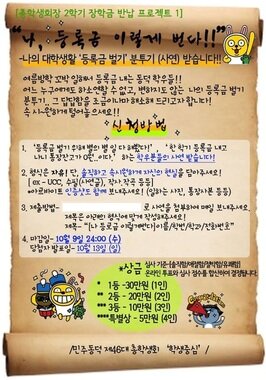 [총학생회장 2학기 장학금 반납 프로젝트 1]
"나, 등록금 이렇게 번다!!"
-나의 대학생활 '등록금 벌기' 분투기 (사연) 받습니다!!
여름방학 꼬박 일해서 등록금 내는 동덕 학우들!!
어느 누구에게도 하소연할 수 없고, 변하지도 않는 나의 등록금 벌기
분투기, 그 답답함을 조금이나마 해소해 드리고자 합니다!
속 시원하게 털어놓으세요!!
신청방법
1. '등록금 벌기 위해 별의 별 일 다 해봤다!', '한 학기 등록금 내고
나니 통장잔고가 0원, 이다.' 하는 학우분들의 사연 받습니다!
2. 형식은 자유! 단, 솔직하고 속시원하게 자신의 현실을 담아주세요!
[ex-UCC, 수필(사연글), 각자, 작곡 등등]
아르바이트 인증샷도 함께 보내주세요. (일하는 사진, 통장사본 등등)
3. 제출방법-
로 사연을 첨부하여 메일 보내주세요.
제목은 이러한 형식에 맞게 작성해주세요!
제목 - "[나 등록금 이렇게번다]이름/학번/학과/전화번호"
4. 마감일- 10월 9일 24:00 (수)
당첨자 발표일- 10월 13일 (일)
*상금
심사 기준-[솔직함/애절함/절박함/유쾌함]
온라인 투표와 심사 점수를 합산하여 결정됩니다.
* 1등-30만원 (1인)
** 2등-20만원 (2인)
*** 3등-10만원 (3인)
****특별상 - 5만원 (4인)
/민주동덕 제46대 총학생회 '학생중심'/